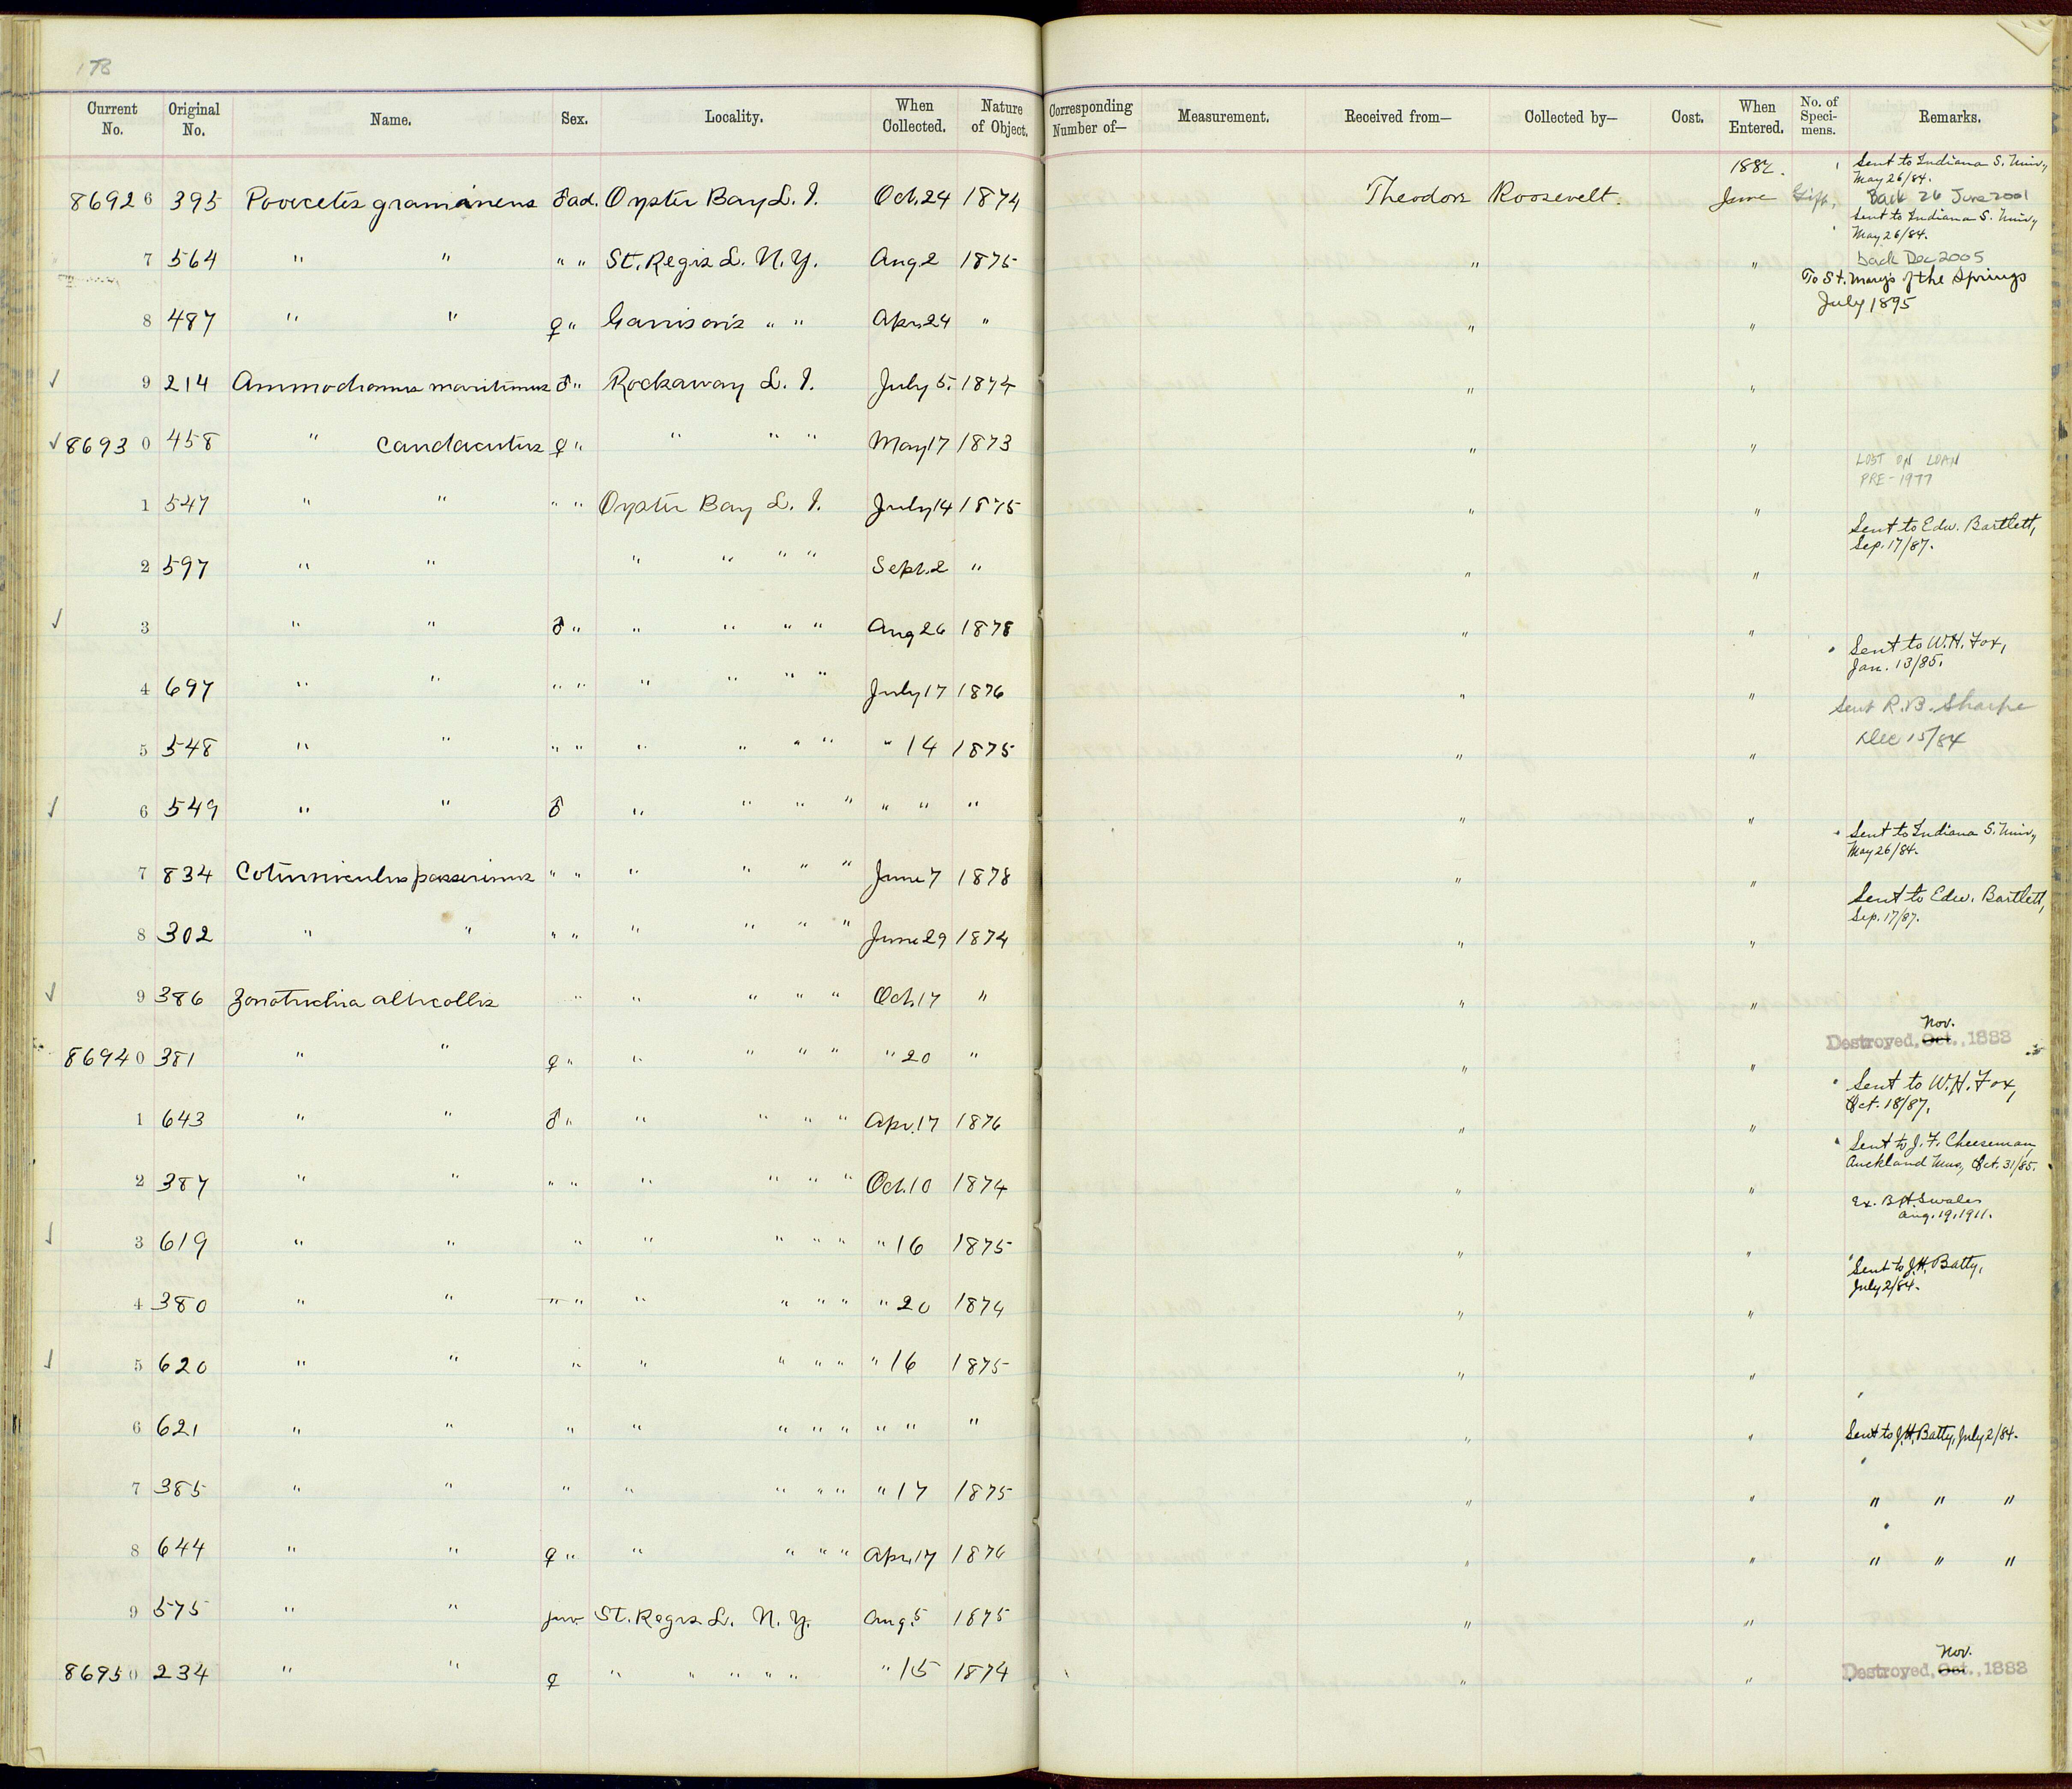 178
Current No. Original No. Name. Sex. Locality. When Collected. Nature of Object. Corresponding Number of— Measurement. Received from— Collected by— Cost. When Entered. No. of Specimens. Remarks.
1882. Sent to Indiana S. Univ., May 26/84.
86926 395 Poocetes gramineus ♂ ad. Oyster Bay L. I. Oct. 24 1874 Theodore Roosevelt. June Gift, Back 26 June 2001
Sent to Indiana S. Univ., May 26/84.
7 564 " " " " St. Regis L. N. Y. Aug 2 1875 " " back Dec 2005
To St. Mary's of the Springs July 1895
8 487 " " ♀ " Garrison's " " Apr. 24 " " "
✓ 9 214 Ammodramus maritimus ♂ " Rockaway L. I. July 5. 1874 " "
✓ 86930 458 " caudacutus ♀ " " " " May 17 1873 " "
LOST ON LOAN PRE-1977
1 547 " " " " Oyster Bay L. I. July 14 1875 " "
Sent to Edw. Bartlett, Sep. 17/87.
2 597 " " " " " " Sept. 2 " " "
✓ 3 " " ♂ " " " " " Aug 26 1878 " "
Sent to W. H. Fox, Jan. 13/85.
4 697 " " " " " " " " July 17 1876 " "
Sent R. B. Sharpe Dec 15/84
5 548 " " " " " " " " " 14 1875 " "
✓ 6 549 " " ♂ " " " " " " " " "
Sent to Indiana S. Univ., May 26/84.
7 834 Coturniculus passerinus " " " " " " June 7 1878 " "
Sent to Edw. Bartlett, Sep. 17/87.
8 302 " " " " " " " " June 29 1874 " "
✓ 9 386 Zonotrichia albicollis " " " " " Oct. 17 " " "
Nov.
86940 381 " " ♀ " " " " " " 20 " " " Destroyed, Oct., 1883
1 643 " " ♂ " " " " " Apr. 17 1876 " " Sent to W. H. Fox, Oct. 18/87.
2 387 " " " " " " " " Oct. 10 1874 " " Sent to J. F. Cheeseman, Auckland Mus, Oct. 31/85.
Ex. B. H. Swales Aug. 19, 1911.
✓ 3 619 " " " " " " " " 16 1875 " "
Sent to J. H. Batty, July 2/84.
4 380 " " " " " " " " " 20 1874 " "
✓ 5 620 " " " " " " " " 16 1875 " "
6 621 " " " " " " " " " " " " Sent to J. H. Batty, July 2/84.
7 385 " " " " " " " " 17 1875 " " " " "
8 644 " " ♀ " " " " " Apr. 17 1876 " " " " "
9 575 " " juv. St. Regis L. N. Y. Aug. 5 1875 " "
Nov.
86950 234 " " ♀ " " " " " " 15 1874 " " Destroyed, Oct., 1883